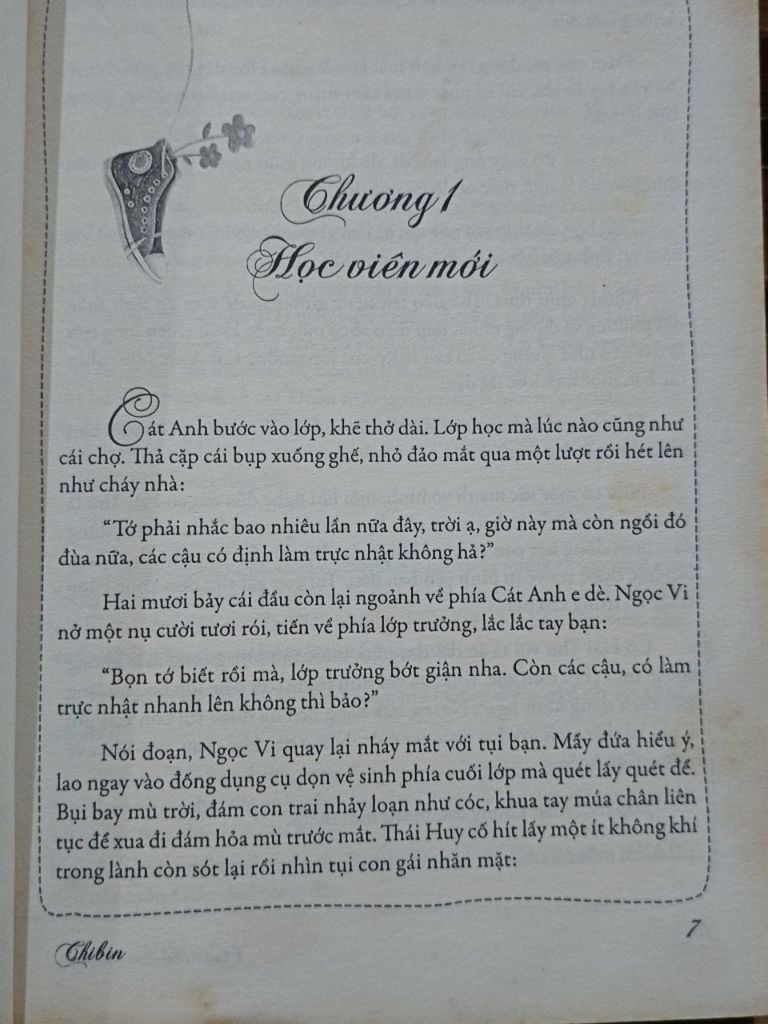 Chương 1
Học viên mới
Cát Anh bước vào lớp, khẽ thở dài. Lớp học mà lúc nào cũng như
cái chợ. Thả cặp cái bụp xuống ghế, nhỏ đảo mắt qua một lượt rồi hét lên
như cháy nhà:
“Tớ phải nhắc bao nhiêu lần nữa đây, trời ạ, giờ này mà còn ngồi đó
đùa nữa, các cậu có định làm trực nhật không hả?”
Hai mươi bảy cái đầu còn lại ngoảnh về phía Cát Anh e dè. Ngọc Vi
nở một nụ cười tươi rói, tiến về phía lớp trưởng, lắc lắc tay bạn:
“Bọn tớ biết rồi mà, lớp trưởng bớt giận nha. Còn các cậu, có làm
trực nhật nhanh lên không thì bảo?”
Nói đoạn, Ngọc Vi quay lại nháy mắt với tụi bạn. Mấy đứa hiểu ý,
lao ngay vào đống dụng cụ dọn vệ sinh phía cuối lớp mà quét lấy quét để.
Bụi bay mù trời, đám con trai nhảy loạn như cóc, khua tay múa chân liên
tục để xua đi đám hỏa mù trước mắt. Thái Huy cố hít lấy một ít không khí
trong lành còn sót lại rồi nhìn tụi con gái nhăn mặt:
7
Chibin